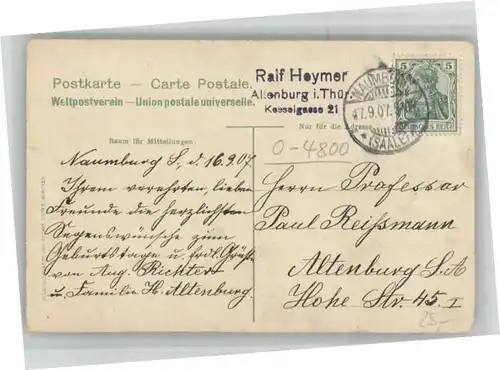 Postkarte – Carte Postale.
Weltpostverein – Union postale universelle.
Ralf Heymer
Altenburg i.Thür.
Kesselgasse 21
5 5
NAUMBURG
17.9.07.
*(SAALE)
DEUTSCHES REICH
Raum für Mitteilungen.
Nur für die Adresse
0-4800
Naumburg S., d. 16.9.07.
Ihrem verehrten, lieben
Freunde die herzlichsten
Segenswünsche zum
Geburtstage u. frdl. Grüße
von Aug. Richter
u. Familie H. Altenburg.
Herrn Professor
Paul Reißmann
Altenburg S.A
Hohe Str. 45. I
25,-